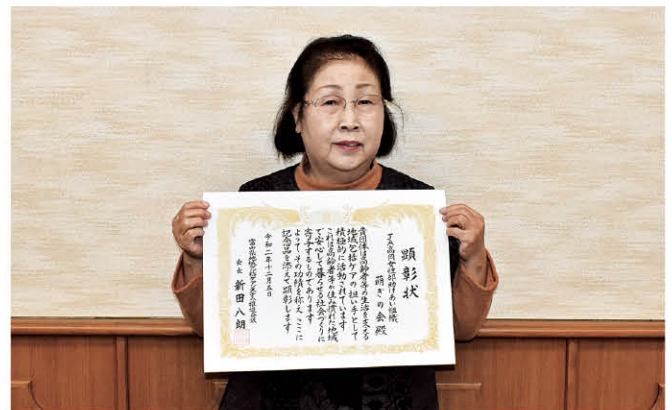 顕彰状
ＪＡ高岡女性部助けあい組織
萌ぎの会殿
貴団体は高齢者等の生活を支える
地域包括ケアの担い手として
積極的に活動されています
これは高齢者等が住み慣れた地域
で安心して暮らせる社会づくりに
寄与するものであります
よってその功績を称えここに
記念品を添えて顕彰します
令和二年十二月五日
富山県地域包括ケア推進県民会議
会長 新田八朗